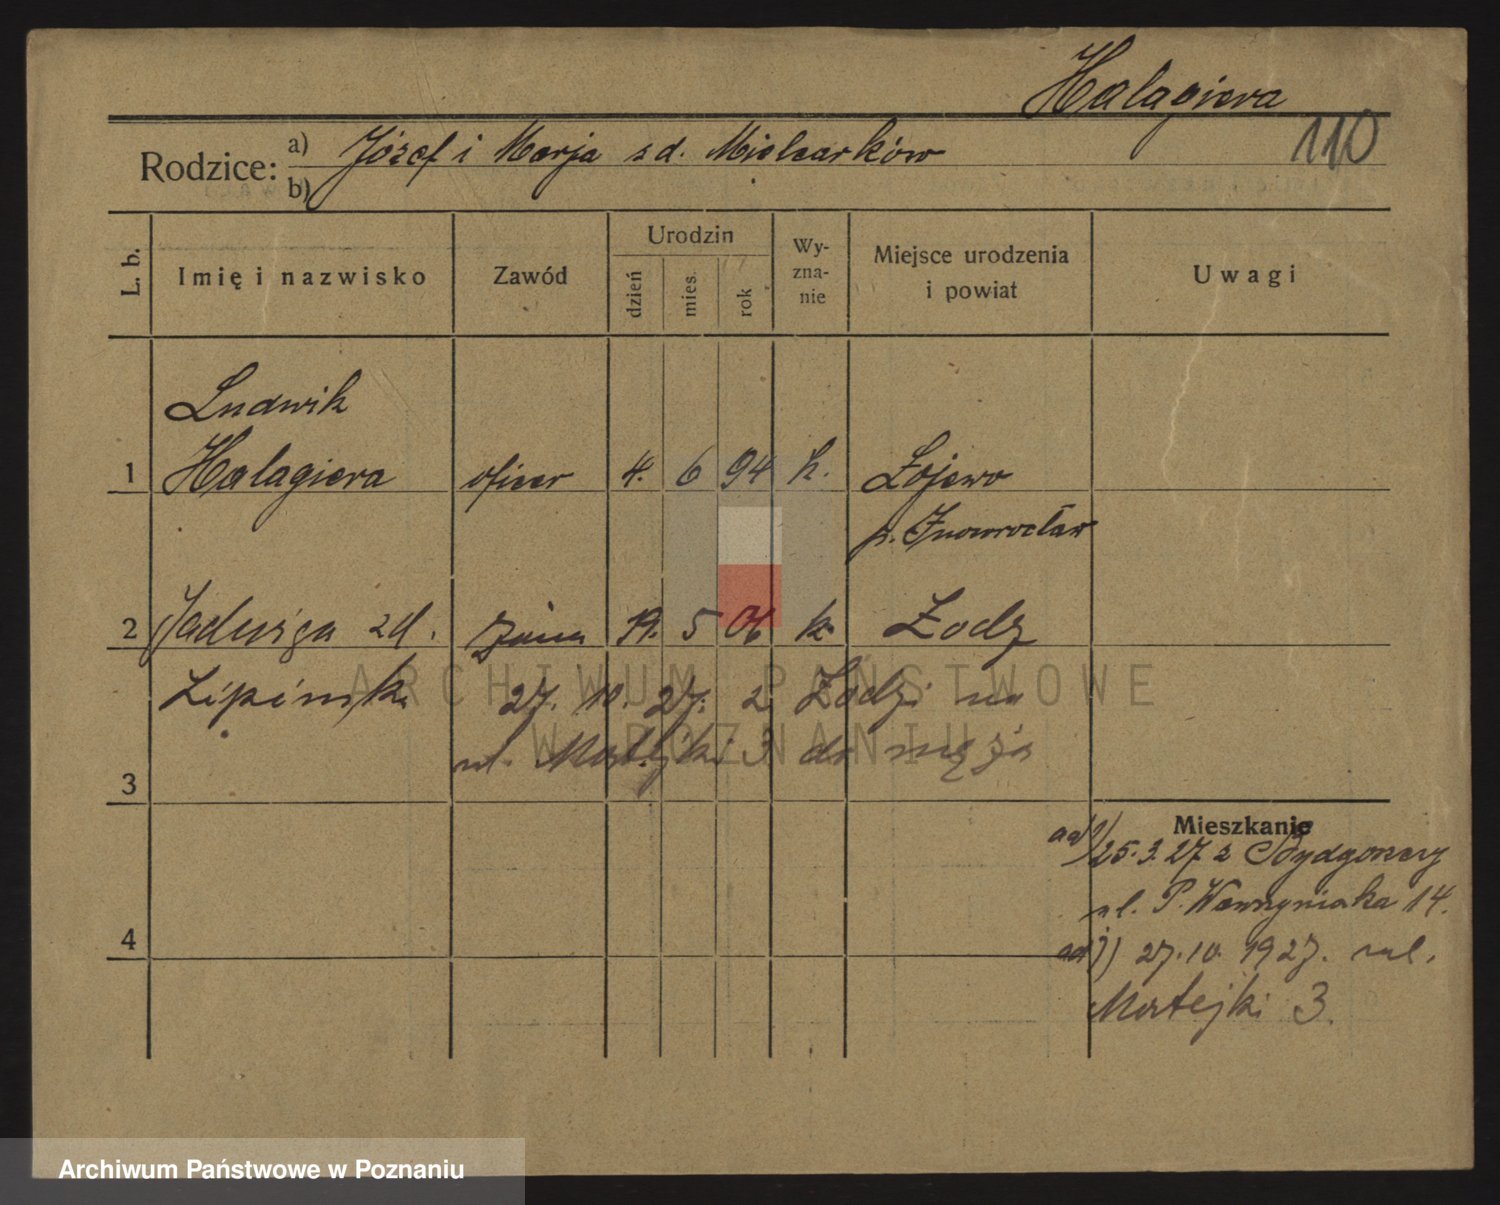 Halagiera
110
Rodzice: a) Józef i Marja z d. Mielcarków
b)
L. b. Imię i nazwisko Zawód Urodzin dzień mies. rok Wyznanie Miejsce urodzenia i powiat Uwagi
Ludwik
1 Halagiera oficer 4. 6 94 k. Łojewo
p. Inowrocław
2 Jadwiga z d. żona 19. 5 06 k. Łodz
Lipińsk. 27. 10. 27. z Łodzi na
ul. Matejki 3 do męża
3
Mieszkanie
ad 1/ 25.3.27 z Bydgoszczy
ul. P. Wawrzyniaka 14.
4
ad 1) 27.10.1927. ul.
Matejki 3.
ARCHIWUM PAŃSTWOWE
W POZNANIU
Archiwum Państwowe w Poznaniu